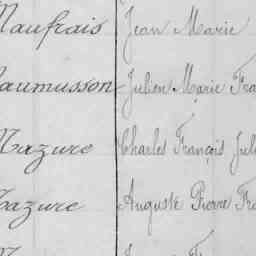 Maufrais Jean Marie
aumusson Julien Marie Fra
Mazure Charles François Jul
Mazure Auguste Pierre Fra